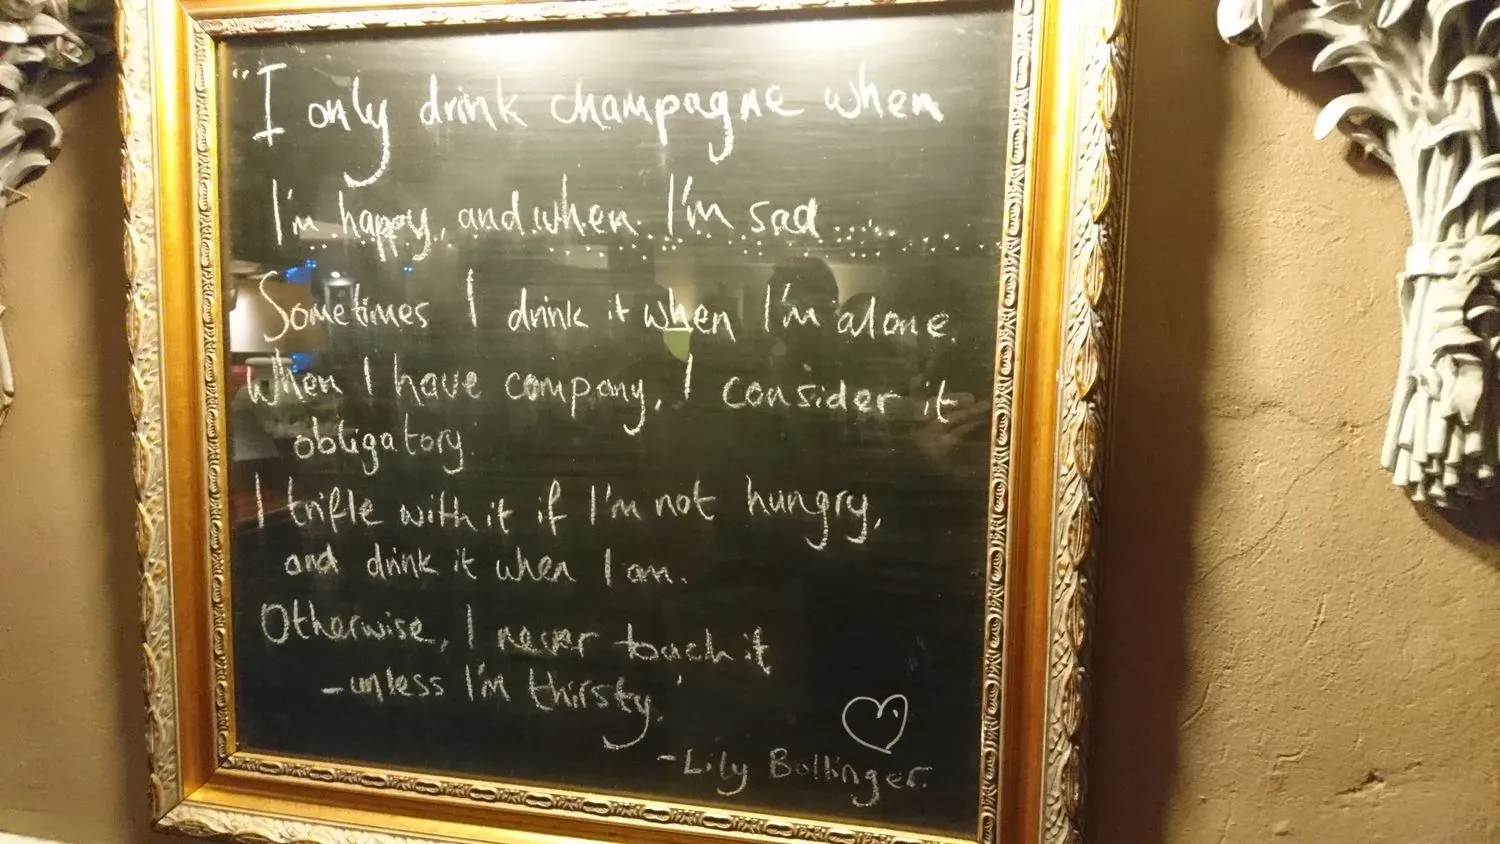 "I only drink champagne when
I'm happy, and when I'm sad
Sometimes I drink it when I'm alone.
When I have company, I consider it
obligatory
I trifle with it if I'm not hungry,
and drink it when I am.
Otherwise, I never touch it
-unless I'm thirsty.'
-Lily Bollinger.